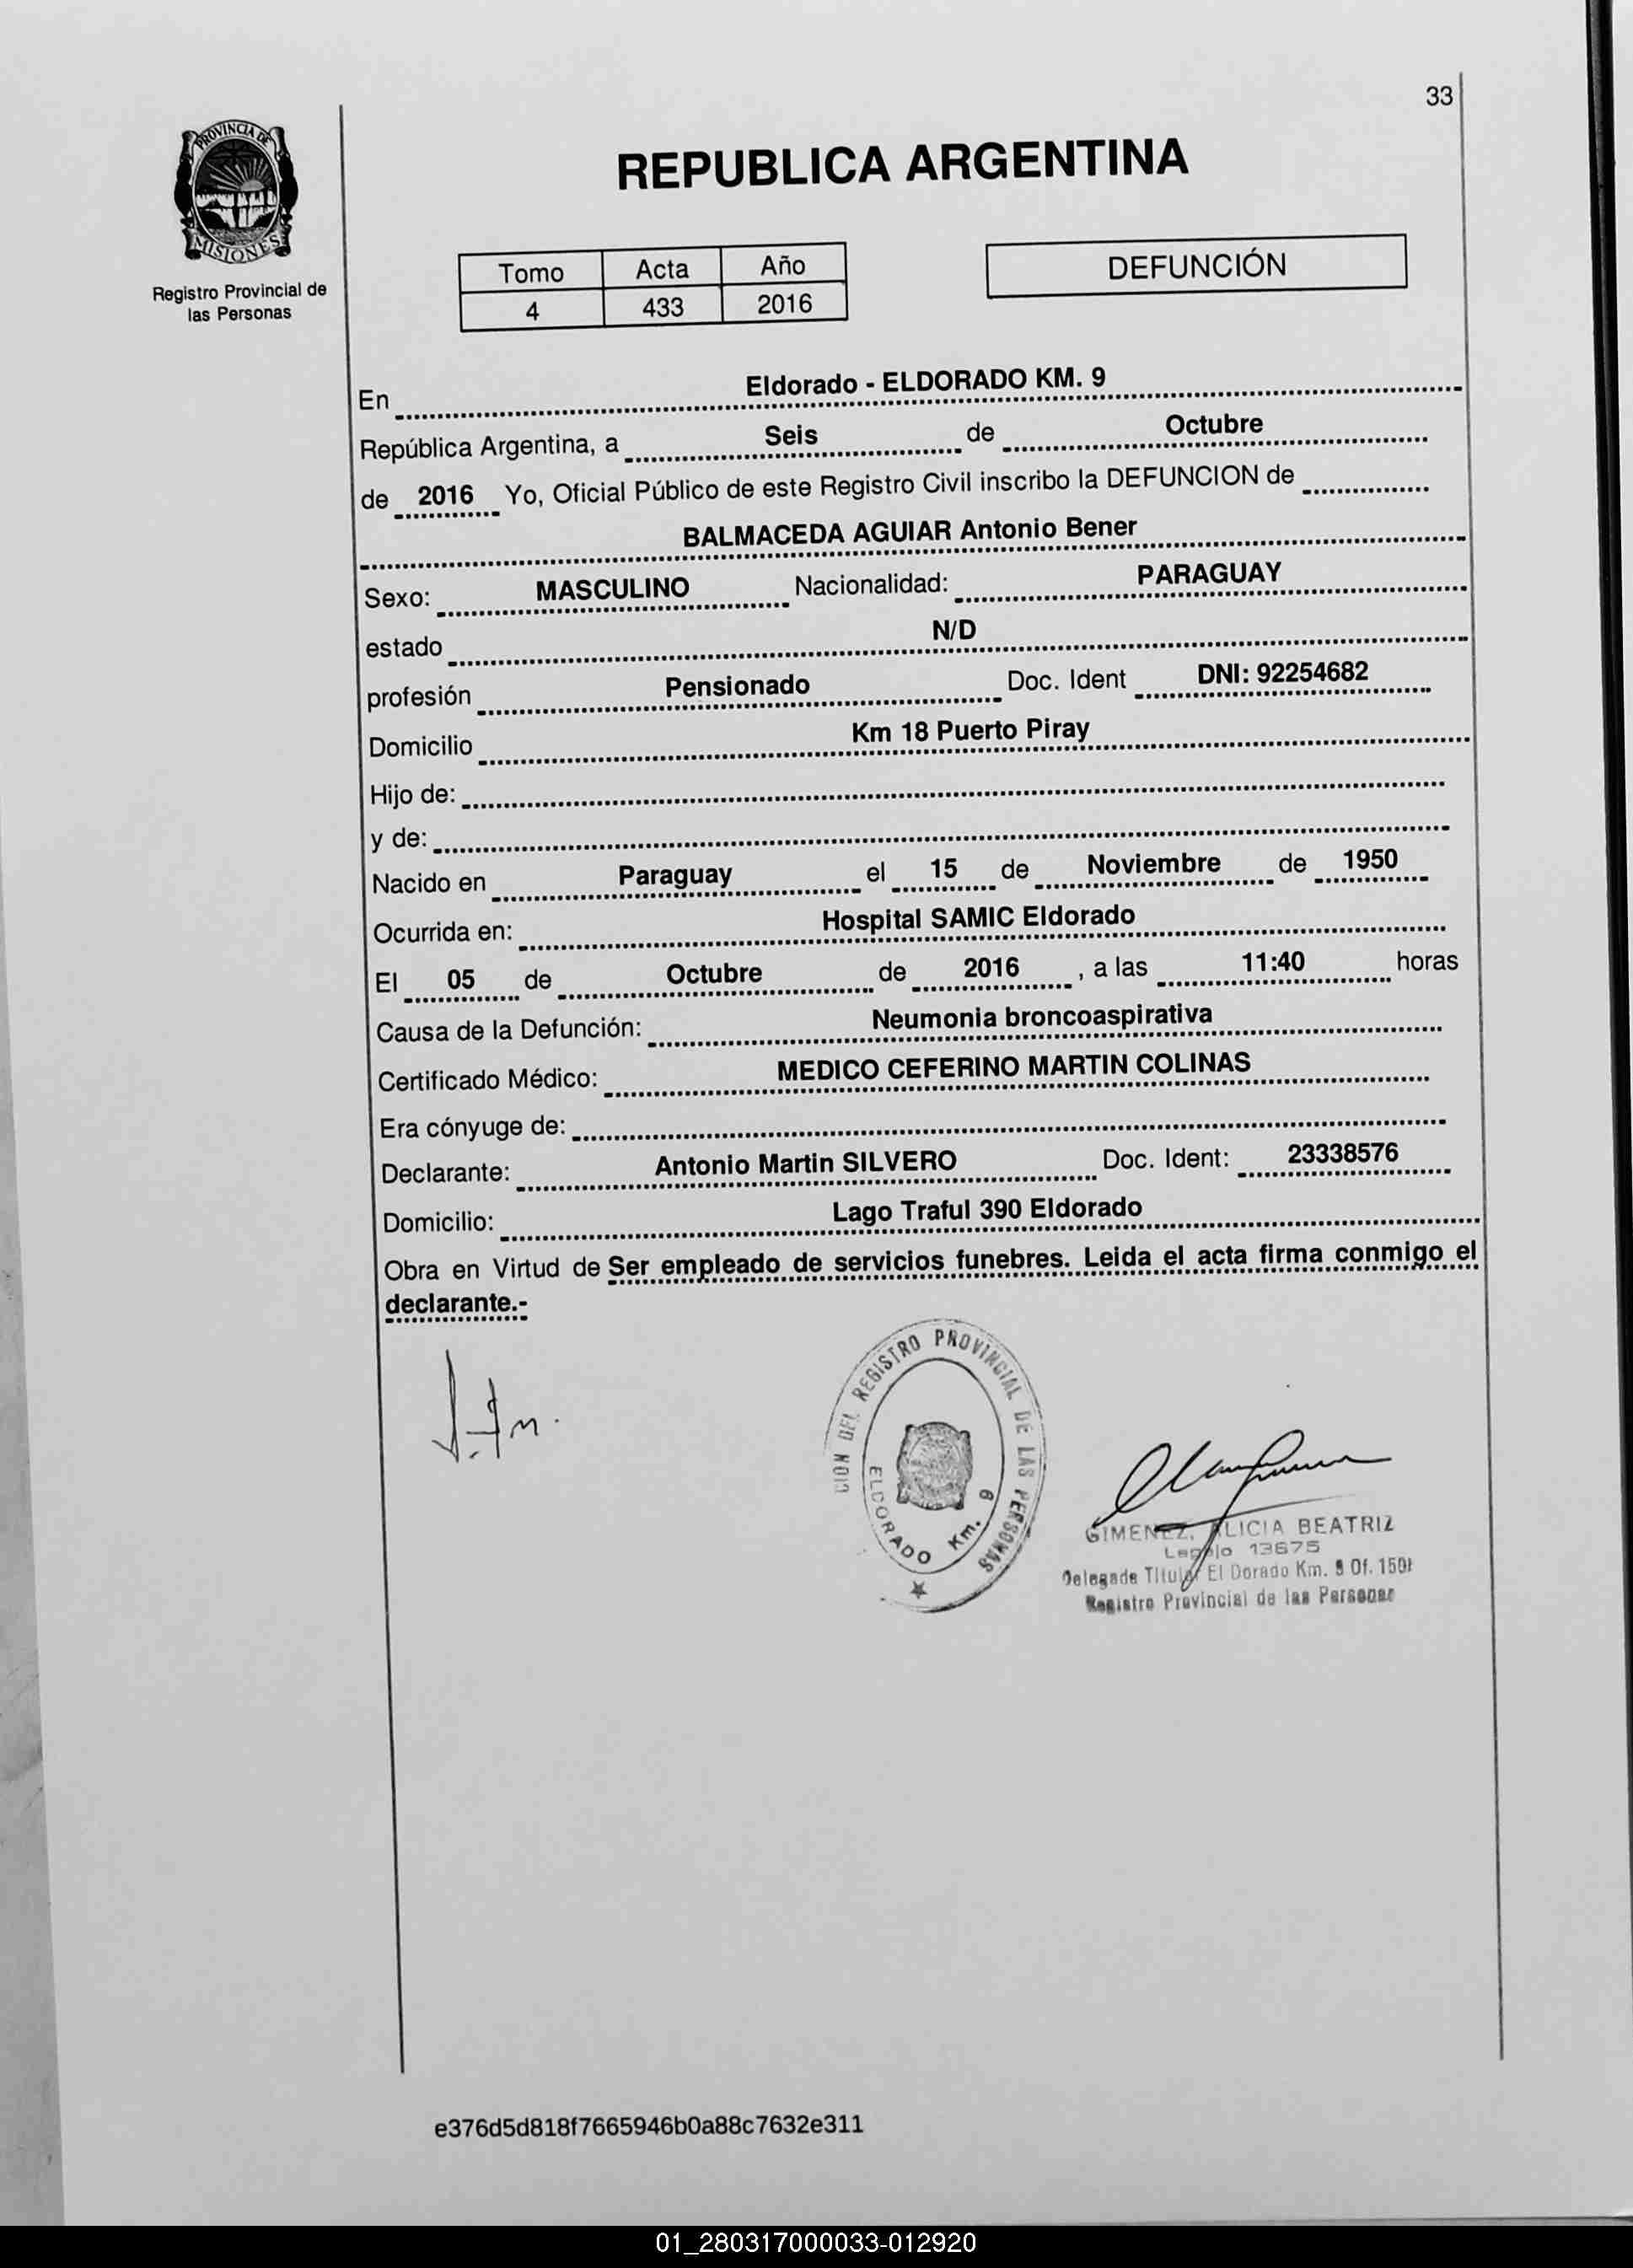 33
PROVINCIA DE
MISIONES
Registro Provincial de
las Personas
REPUBLICA ARGENTINA
Tomo Acta Año
4 433 2016
DEFUNCIÓN
En Eldorado - ELDORADO KM. 9
República Argentina, a Seis de Octubre
de 2016 Yo, Oficial Público de este Registro Civil inscribo la DEFUNCION de
BALMACEDA AGUIAR Antonio Bener
Sexo: MASCULINO Nacionalidad: PARAGUAY
estado N/D
profesión Pensionado Doc. Ident DNI: 92254682
Domicilio Km 18 Puerto Piray
Hijo de:
y de:
Nacido en Paraguay el 15 de Noviembre de 1950
Ocurrida en: Hospital SAMIC Eldorado
El 05 de Octubre de 2016 , a las 11:40 horas
Causa de la Defunción: Neumonia broncoaspirativa
Certificado Médico: MEDICO CEFERINO MARTIN COLINAS
Era cónyuge de:
Declarante: Antonio Martin SILVERO Doc. Ident: 23338576
Domicilio: Lago Traful 390 Eldorado
Obra en Virtud de Ser empleado de servicios funebres. Leida el acta firma conmigo el
declarante.-
DEL REGISTRO PROVINCIAL DE LAS PERSONAS
ELDORADO Km. 9
GIMENEZ, ALICIA BEATRIZ
Legajo 13675
Delegada Titular El Dorado Km. 9 Of.
Registro Provincial de las Personas
e376d5d818f7665946b0a88c7632e311
01_280317000033-012920